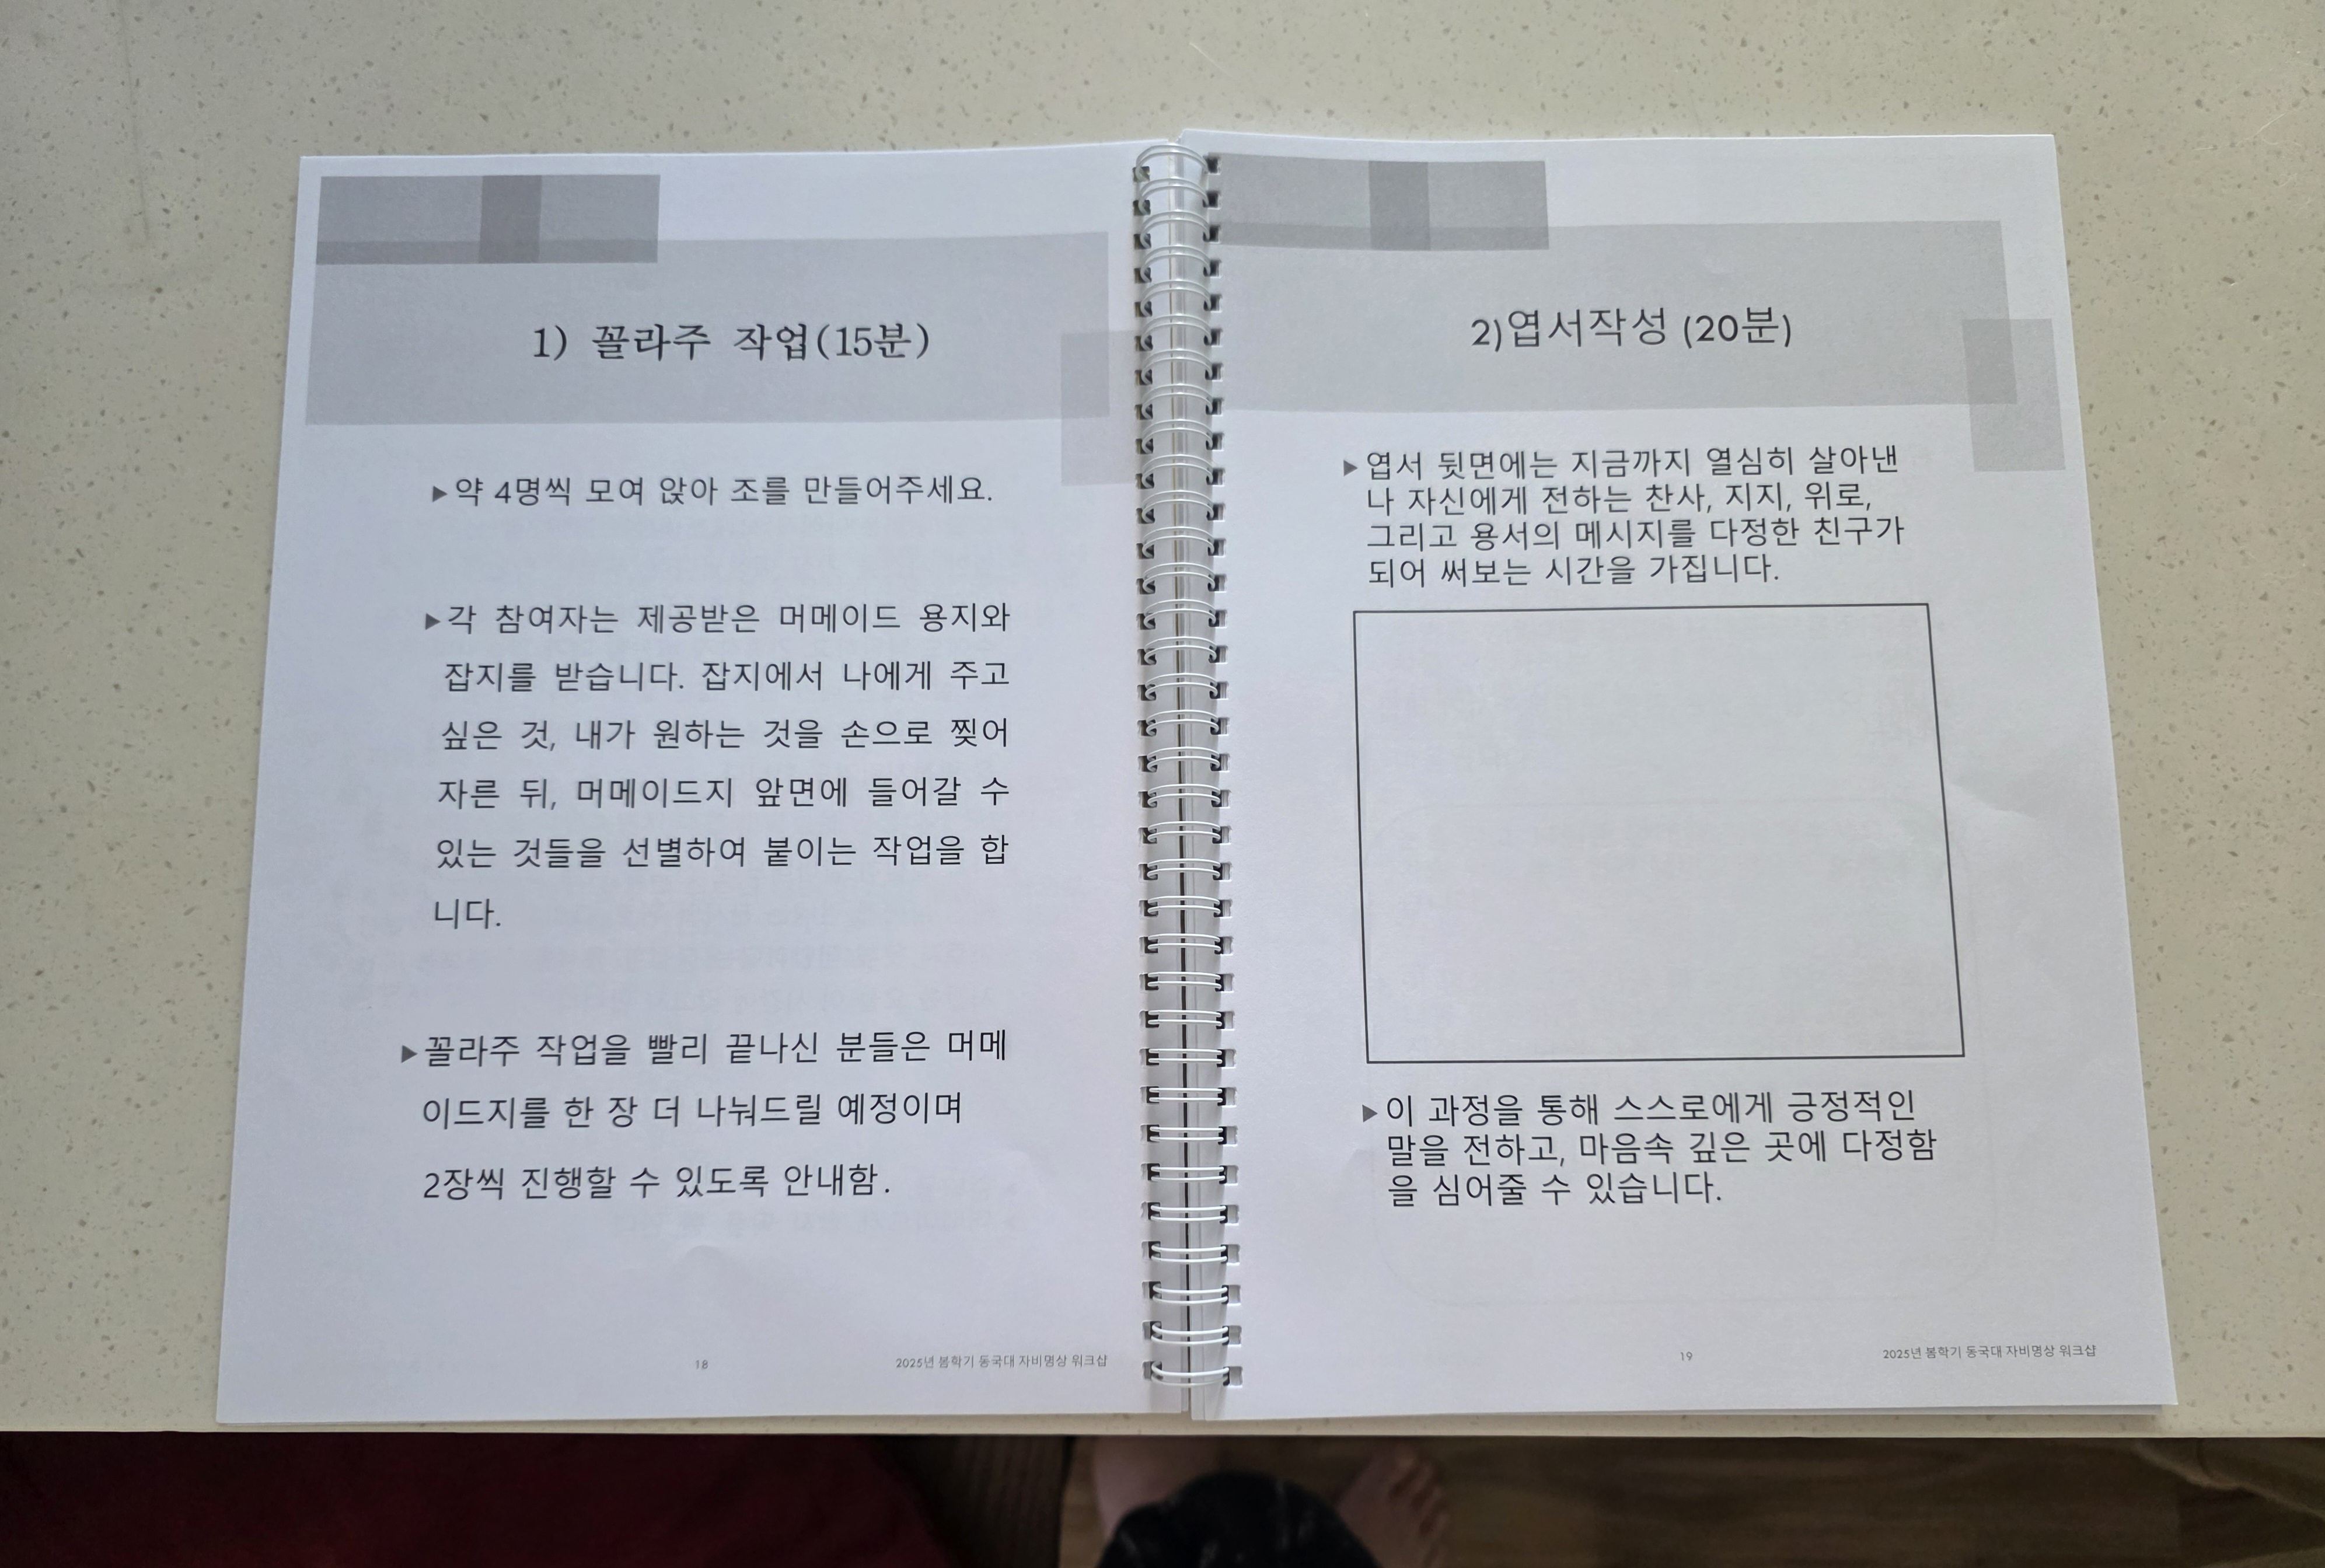 1) 꼴라주 작업(15분)
▶약 4명씩 모여 앉아 조를 만들어주세요.
▶각 참여자는 제공받은 머메이드 용지와
잡지를 받습니다. 잡지에서 나에게 주고
싶은 것, 내가 원하는 것을 손으로 찢어
자른 뒤, 머메이드지 앞면에 들어갈 수
있는 것들을 선별하여 붙이는 작업을 합
니다.
▶꼴라주 작업을 빨리 끝나신 분들은 머메
이드지를 한 장 더 나눠드릴 예정이며
2장씩 진행할 수 있도록 안내함.
18
2025년 봄학기 동국대 자비명상 워크샵
2)엽서작성 (20분)
▶엽서 뒷면에는 지금까지 열심히 살아낸
나 자신에게 전하는 찬사, 지지, 위로,
그리고 용서의 메시지를 다정한 친구가
되어 써보는 시간을 가집니다.
▶이 과정을 통해 스스로에게 긍정적인
말을 전하고, 마음속 깊은 곳에 다정함
을 심어줄 수 있습니다.
19
2025년 봄학기 동국대 자비명상 워크샵